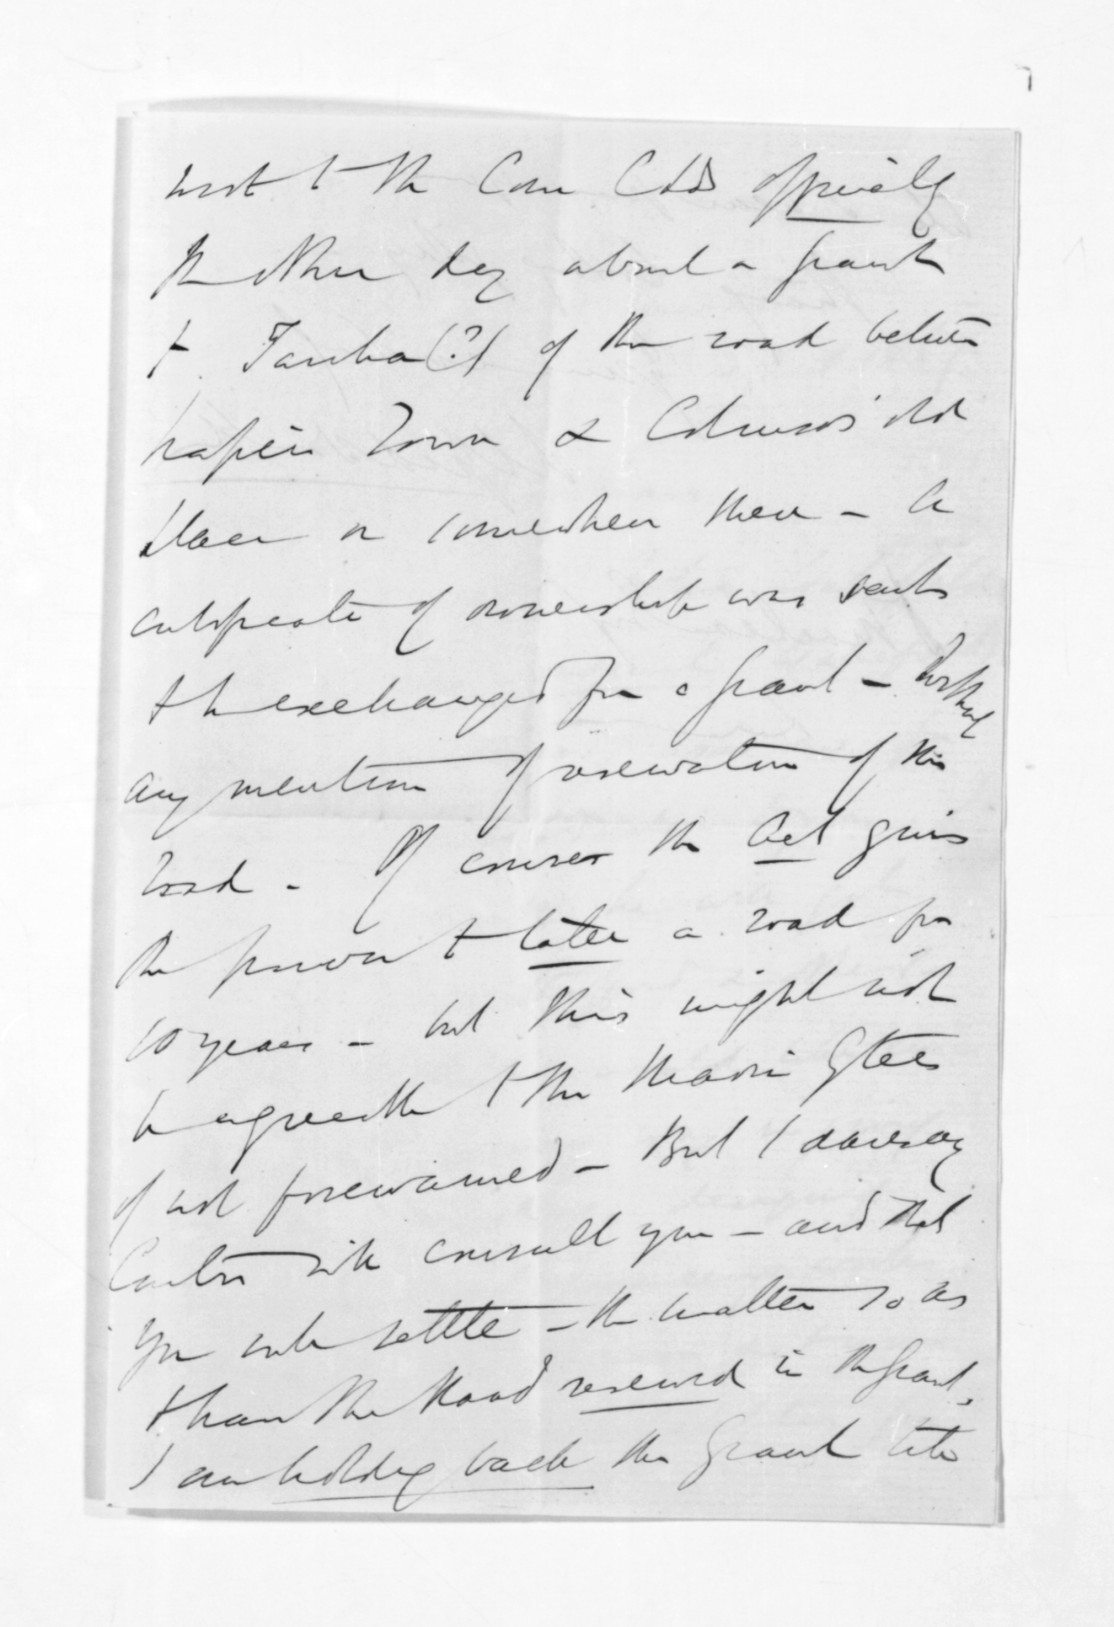 wrote to the Com Clds officially
the other day about a grant
to Tareha(?) of the road between
Napier Town & Colenso's old
place or somewhere there - A
certificate of ownership was sent
to be exchanged for a grant - without
any mention of reservation of this
road - Of course the Act gives
the power to take a road for
10 years - but this might not
be agreeable to the Maori Gtees
if not forewarned - But I daresay
will consult you - and that
you will settle - the matter so as
to have the Road reserved in the grant.
I am holding back the Grant till